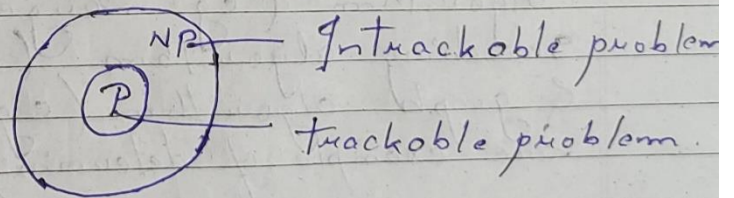 NP Intrackable problem
P trackable problem.